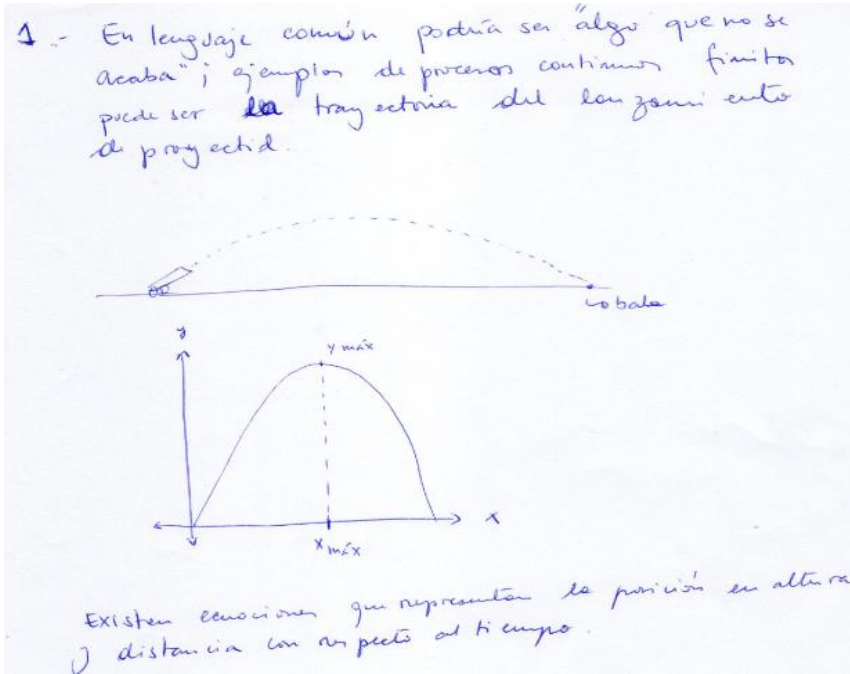 1.- En lenguaje común podría ser "algo que no se
acaba"; ejemplos de procesos continuos finitos
puede ser la trayectoria del lanzamiento
de proyectil.
bala
y
y máx
x
x máx
Existen ecuaciones que representan la posición en altura
y distancia con respecto al tiempo.